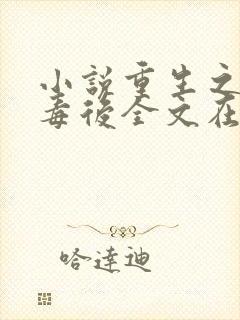 小說重生之
毒後全文在
哈達迪